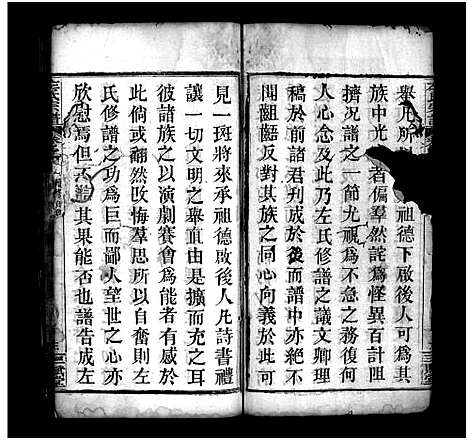 舉凡所 祖德下啟後人可為其
族中光 者偏羣然詫為怪異百計阻
擠况譜之一節尤視為不急之務復何
人心念及此乃左氏修譜之議文卿理
稿於前諸君刋成於後而譜中亦絶不
聞齟齬反對其族之同心向義於此可
見一斑將來承祖德啟後人凡詩書禮
讓一切文明之舉直由是擴而充之耳
彼諸族之以演劇賽會為能者有感於
此倘或翻然改悔羣思所以自奮則左
氏修譜之功為巨而鄙人望世之心亦
欣慰焉但不識其果能否也譜告成左